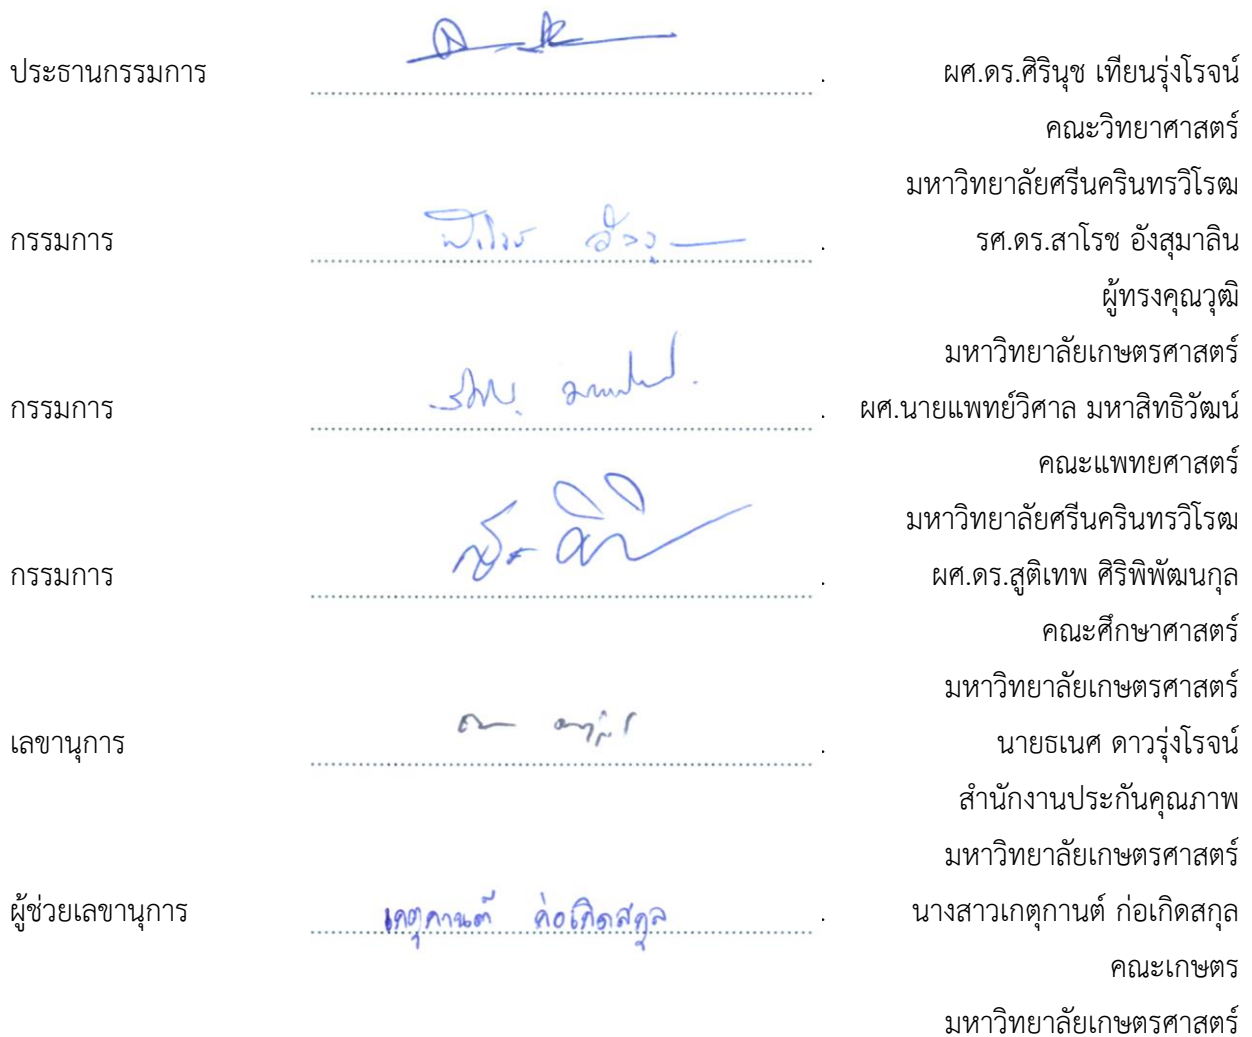 ประธานกรรมการ ........................ . ผศ.ดร.ศิรินุช เทียนรุ่งโรจน์
คณะวิทยาศาสตร์
มหาวิทยาลัยศรีนครินทรวิโรฒ
กรรมการ ........................ . รศ.ดร.สาโรช อังสุมาลิน
ผู้ทรงคุณวุฒิ
มหาวิทยาลัยเกษตรศาสตร์
กรรมการ ........................ . ผศ.นายแพทย์วิศาล มหาสิทธิวัฒน์
คณะแพทยศาสตร์
มหาวิทยาลัยศรีนครินทรวิโรฒ
กรรมการ ........................ . ผศ.ดร.สูติเทพ ศิริพิพัฒนกุล
คณะศึกษาศาสตร์
มหาวิทยาลัยเกษตรศาสตร์
เลขานุการ ........................ . นายธเนศ ดาวรุ่งโรจน์
สำนักงานประกันคุณภาพ
มหาวิทยาลัยเกษตรศาสตร์
ผู้ช่วยเลขานุการ เกตุกานต์ ก่อเกิดสกุล . นางสาวเกตุกานต์ ก่อเกิดสกุล
คณะเกษตร
มหาวิทยาลัยเกษตรศาสตร์